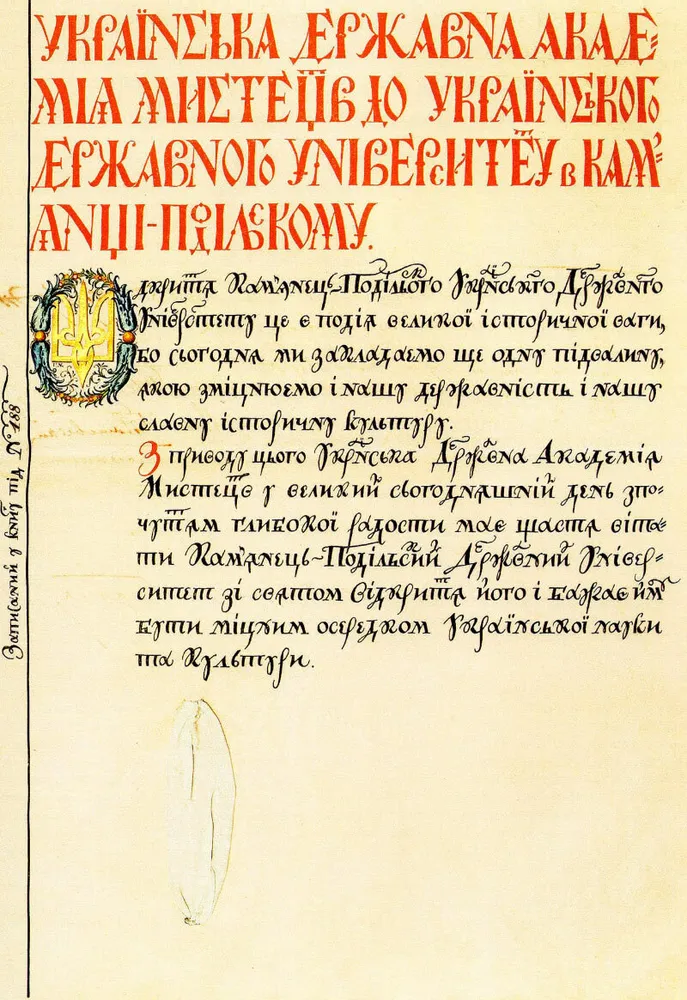 УКРАЇНСЬКА ДЕРЖАВНА АКАДЕ-
МІЯ МИСТЕЦТВ ДО УКРАЇНСЬКОГО
ДЕРЖАВНОГО УНІВЕРСИТЕТУ в КАМ'-
ЯНЦІ-ПОДІЛЬСКОМУ.
Відкриття Кам'янець-Подільского Українського Державного
Університету це є подія великої історичної ваги,
бо сьогодня ми закладаємо ще одну підвалину,
якою зміцнюємо і нашу державність і нашу
славну історичну культуру.
З приводу цього Українська Державна Академія
Мистецтв у великий сьогодняшній день з по-
чуттям глибокої радости має щастя віта-
ти Кам'янець-Подільский Державний Універ-
ситет зі святом Відкриття його і бажає йому
бути міцним осередком Української науки
та Культури.
Записаний у книгу під № 488